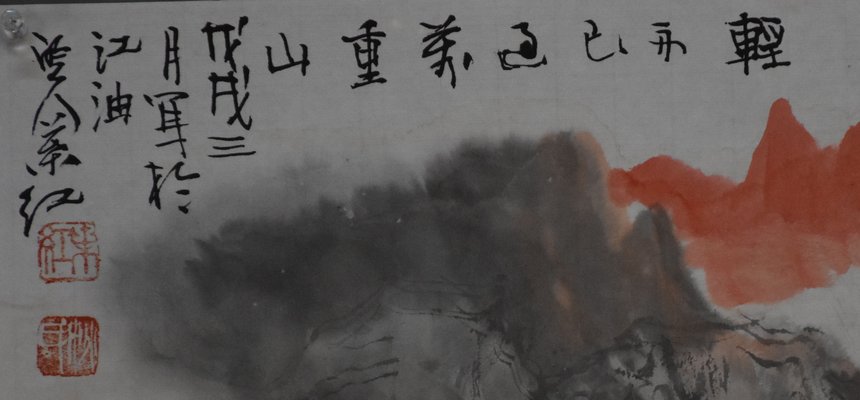 輕舟已過萬重山
戊戌三
月写於
江油
红